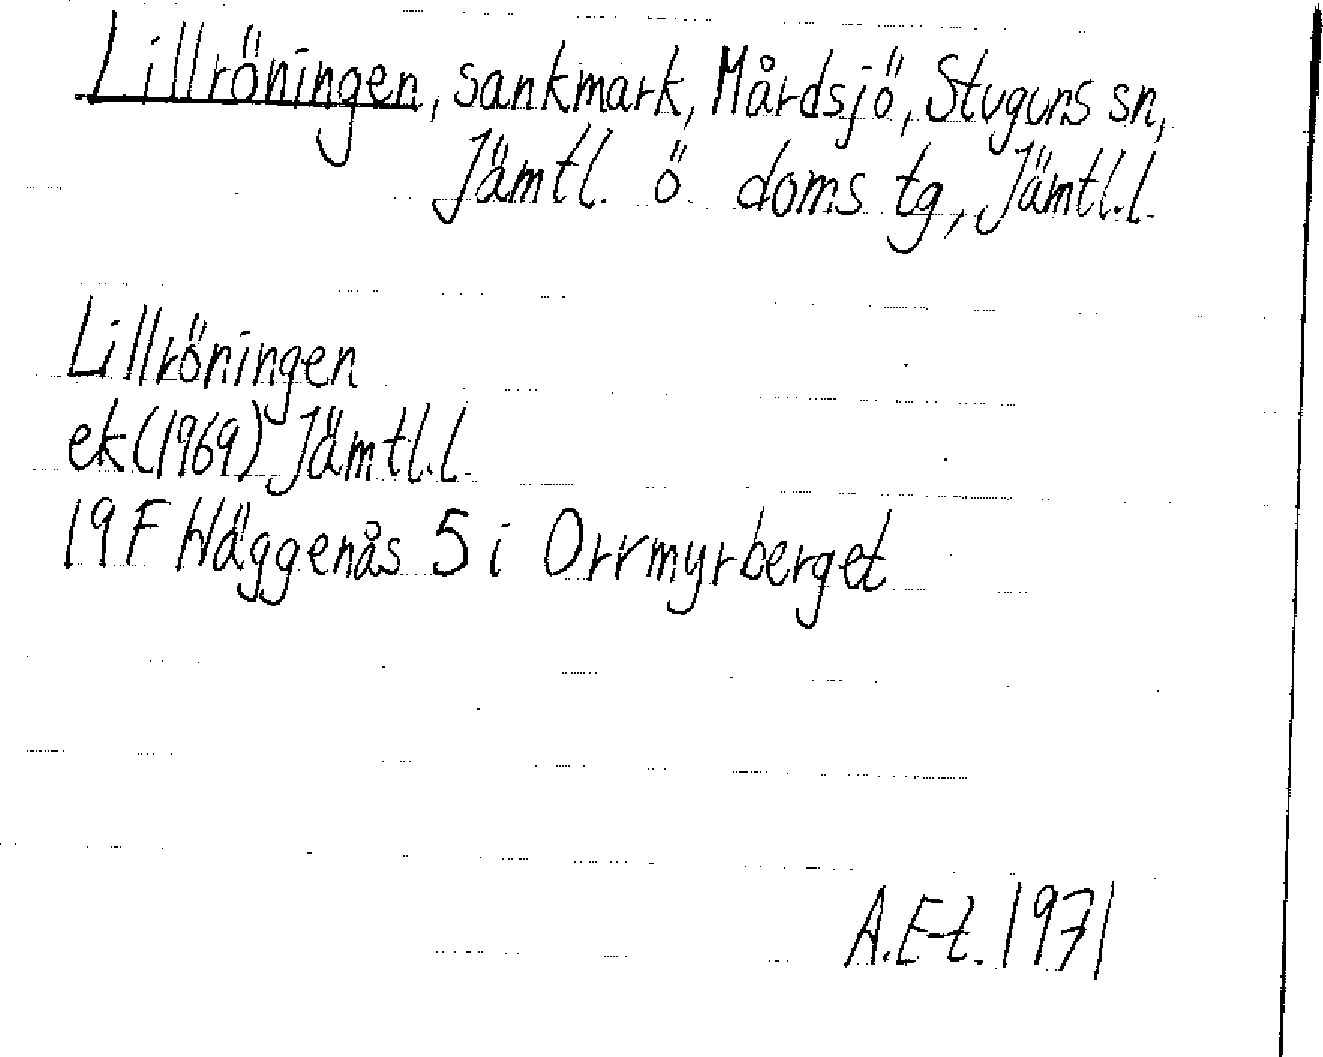 Lillröningen, sankmark, Mårdsjö, Stuguns sn,
Jämtl. ö doms tg, Jämtl.l.
Lillröningen
ek (1969) Jämtl.l.
19 F Häggenås 5 i Orrmyrberget
A.E-t. 1971